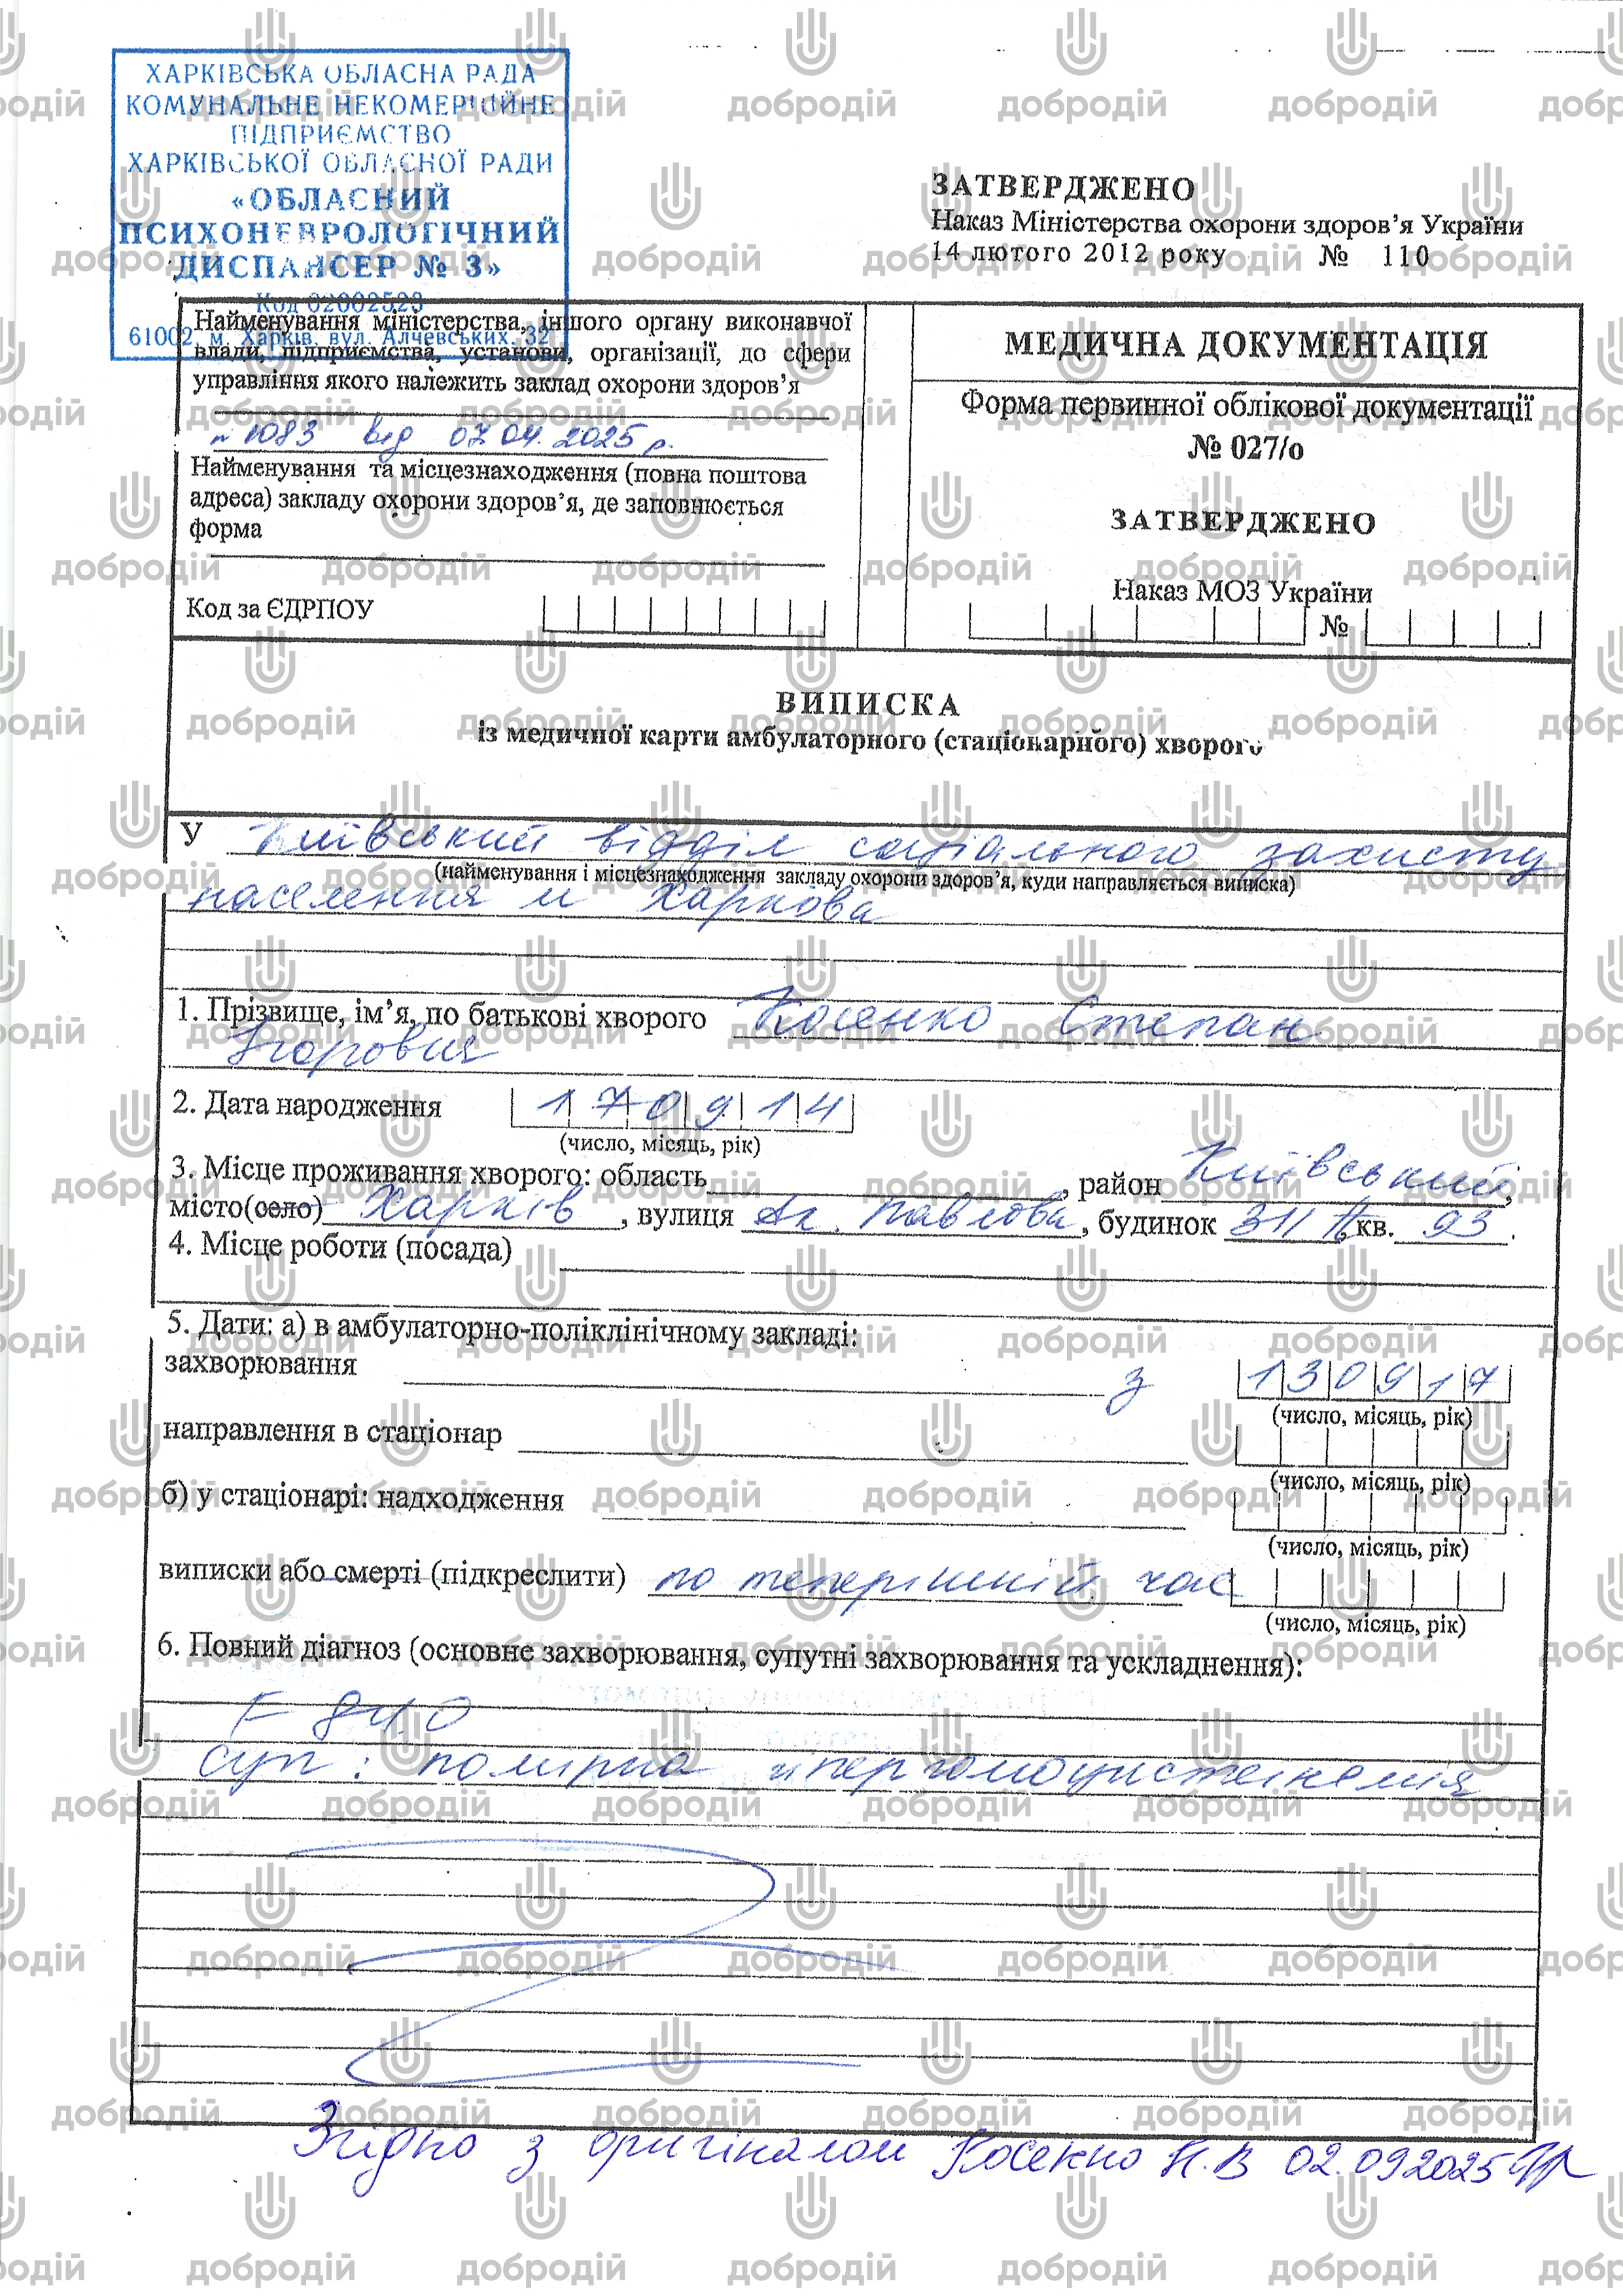 ХАРКІВСЬКА ОБЛАСНА РАДА
КОМУНАЛЬНЕ НЕКОМЕРЦІЙНЕ
ПІДПРИЄМСТВО
ХАРКІВСЬКОЇ ОБЛАСНОЇ РАДИ
«ОБЛАСНИЙ
ПСИХОНЕВРОЛОГІЧНИЙ
ДИСПАНСЕР № 3»
Код 02002523
61002, м. Харків, вул. Алчевських, 32
ЗАТВЕРДЖЕНО
Наказ Міністерства охорони здоров'я України
14 лютого 2012 року № 110
Найменування міністерства, іншого органу виконавчої
влади, підприємства, установи, організації, до сфери
управління якого належить заклад охорони здоров'я
№ 1083 від 07.04.2025 р.
Найменування та місцезнаходження (повна поштова
адреса) закладу охорони здоров'я, де заповнюється
форма
Код за ЄДРПОУ
МЕДИЧНА ДОКУМЕНТАЦІЯ
Форма первинної облікової документації
№ 027/о
ЗАТВЕРДЖЕНО
Наказ МОЗ України
№
ВИПИСКА
із медичної карти амбулаторного (стаціонарного) хворого
У Київський відділ соціального захисту
(найменування і місцезнаходження закладу охорони здоров'я, куди направляється виписка)
населення м Харкова
1. Прізвище, ім'я, по батькові хворого Косенко Степан
Ігорович
2. Дата народження 1 7 0 9 1 4
(число, місяць, рік)
3. Місце проживання хворого: область , район Київський,
місто(село) Харків, вулиця Ак. Павлова, будинок , кв. 93.
4. Місце роботи (посада)
5. Дати: а) в амбулаторно-поліклінічному закладі:
захворювання з 1 3 0 9 1 7
(число, місяць, рік)
направлення в стаціонар
(число, місяць, рік)
б) у стаціонарі: надходження
(число, місяць, рік)
виписки або смерті (підкреслити) по теперішній час
(число, місяць, рік)
6. Повний діагноз (основне захворювання, супутні захворювання та ускладнення):
F 84.0
суп: помірна гіпергомоцистеїнемія
Згідно з оригіналом Косенко Н.В 02.09.2025
добродій